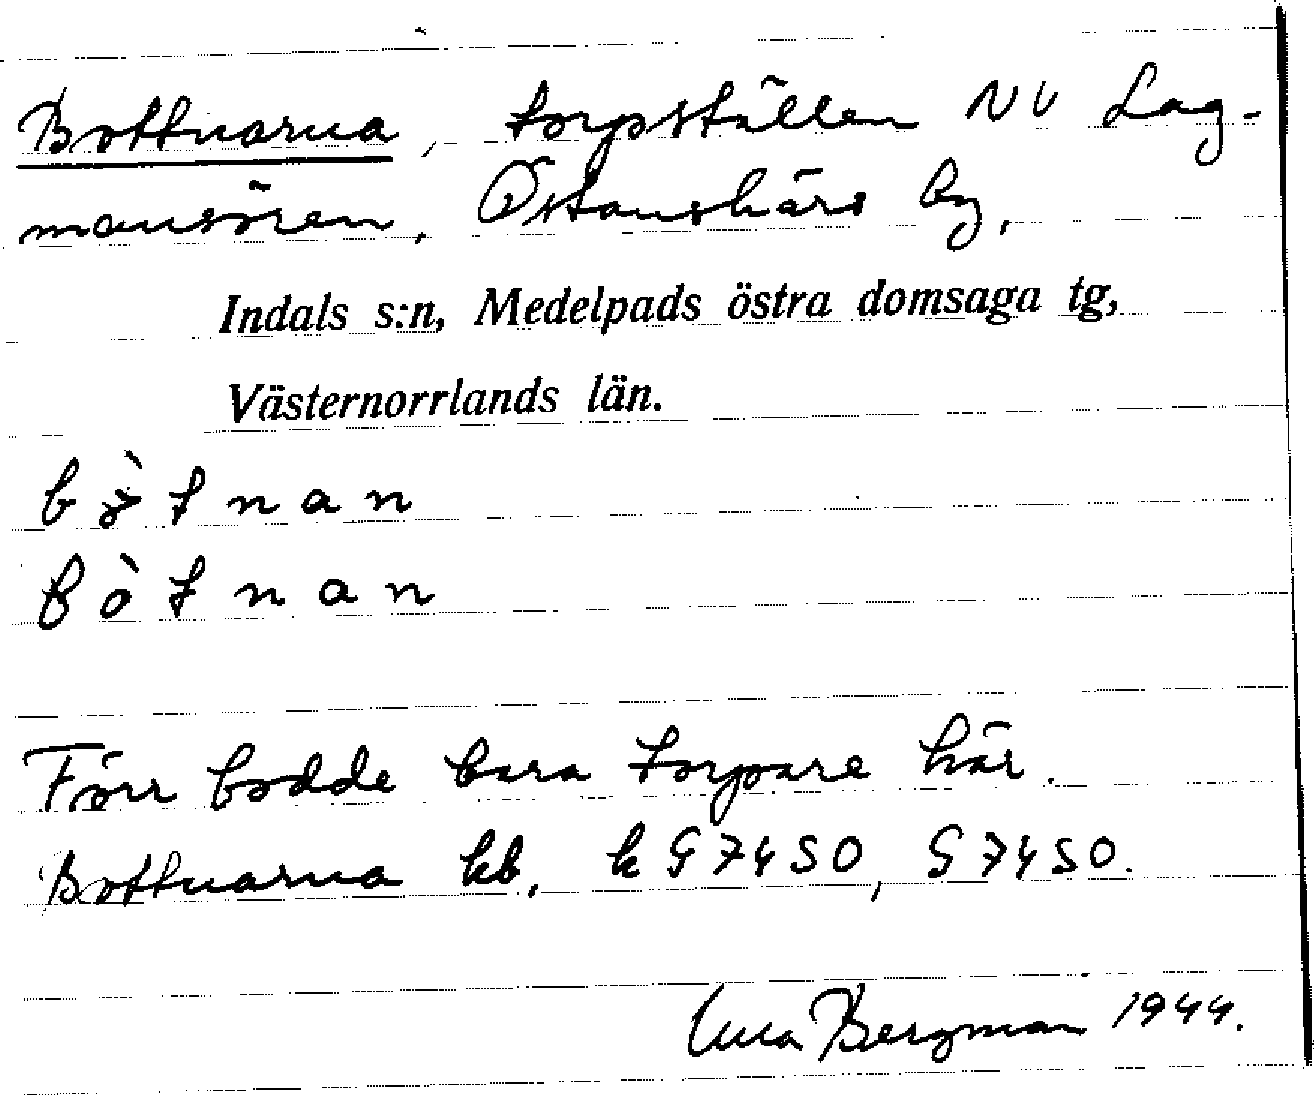 Bottnarna, torpställen NV Lag-
mansören, Östanskärs by,
Indals s:n, Medelpads östra domsaga tg,
Västernorrlands län.
b t n a n
b ò t n a n
Förr bodde bara torpare här.
Bottnarna kb, k G7450, G7450.
Bergman 1944.